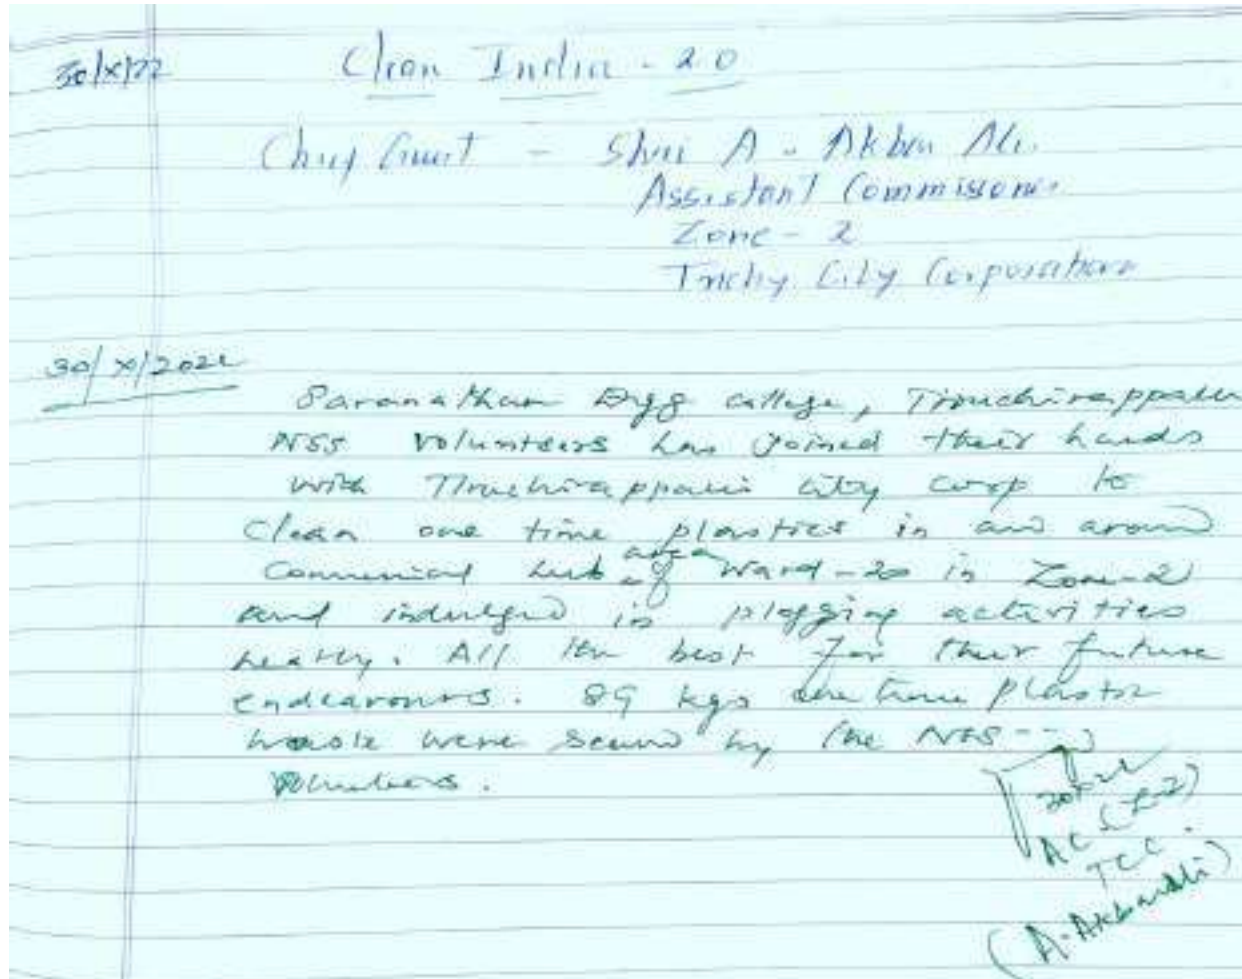 30/X/22
Clean India - 2.0
Chief Guest - Shri A. Akbar Ali.
Assistant Commissioner
Zone - 2
Trichy City Corporation
30/X/2022
Saranathan Engg college, Tiruchirappalli
NSS volunteers has joined their hands
with Tiruchirappalli city corp to
clean one time plastics in and around
Commercial hub area of Ward-20 in Zone-2
and indulged in plogging activities
heartly. All the best for their future
endeavours. 89 kgs one time plastic
waste were by the NSS
volunteers.
AC (Z-2)
TCC.
(A. Akbar Ali)